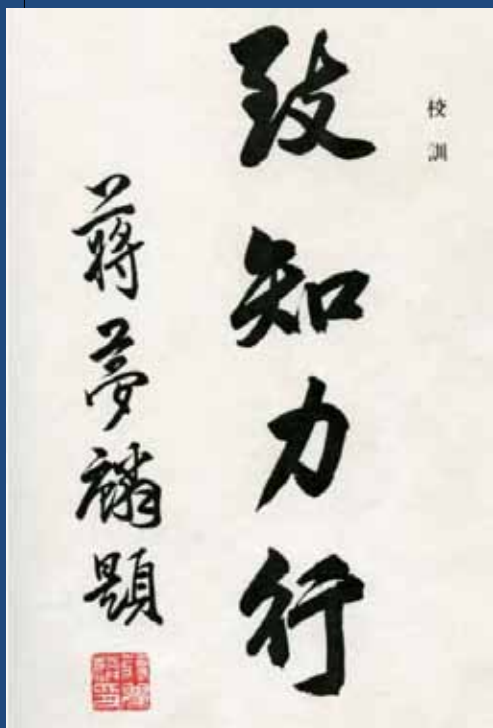 校訓
致知力行
蔣夢麟題